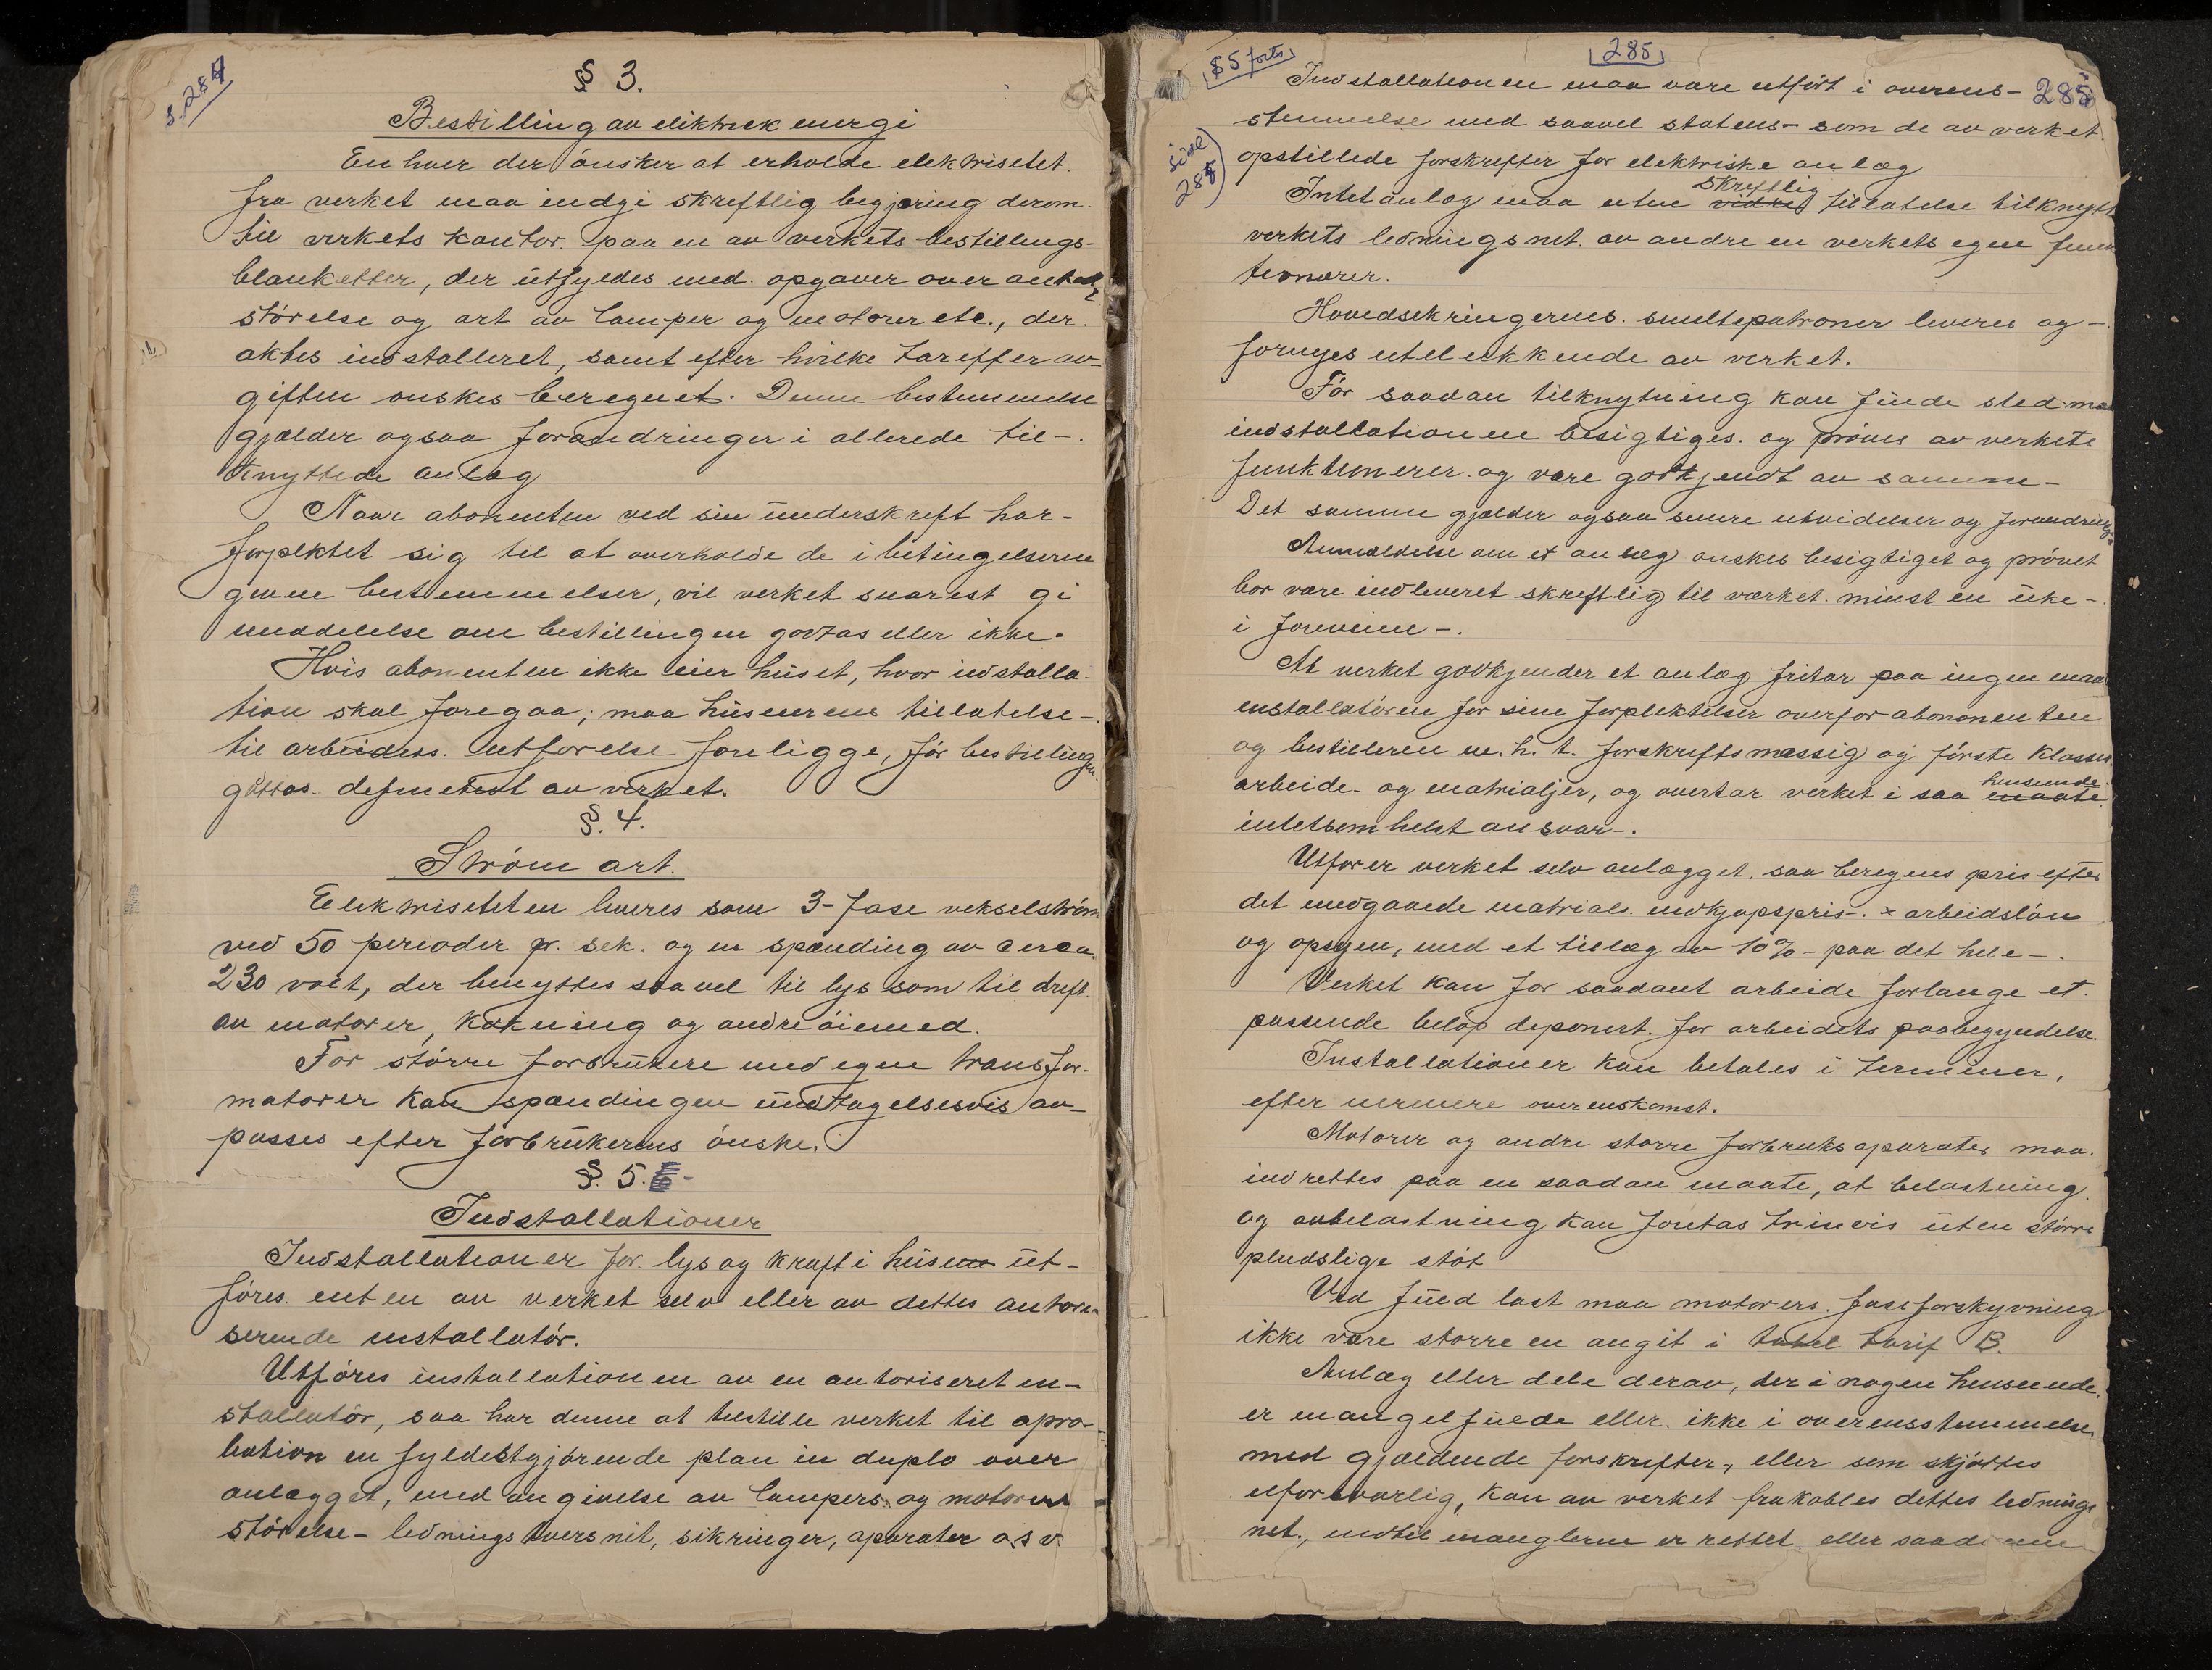 s. 284
§ 3.
Bestilling av eliktrek energi
En hver der ønsker at erholde elektrisetet.
fra verket maa indgi skreftlig begjæring derom.
til verkets kontor. paa en av verkets bestillings-
blanketter, der utfyldes med. opgaver over antall,
størelse og art av lamper og motorer etc., der.
aktes indstalleret, samt efter hvilke tareffer av-
giften ønskes beregnet. Denne bestemmelse
gjælder ogsaa forandringer i allerede til-.
knyttede anlæg
Naar abonenten ved sin underskreft har-
forplktet sig til at overholde de i betingelserne
givne bestemmelser, vil verket snarest gi
meddelelse om bestillingen godtas eller ikke.
Hvis abonenten ikke eier huset, hvor indstalla-
tion skal foregaa; maa huseierens tillatelse-.
til arbeidets. utførelse foreligge, før bestillingen.
gottas. definetivt av verket.
§. 4.
Strøm art.
Elektrisiteten leveres som 3-fase vekselstrøm
ved 50 perioder pr. sek. og en spænding av cerca.
230 volt, der benyttes saavel til lys som til dreft.
av motorer, kokning og andre øiemed.
For større forbrukere med egen transfor-
matorer kan spændingen undtagelsesvis av-
passes efter forbrukerens ønske.
§. 5.
Indstallationer
Indstallationer for. lys og kraft i husene ut-
føres. enten av verket selv eller av dettes autori-
serende installatør.
Utføres installationen av en autoriseret in-
stallatør, saa har denne at tilstille verket til apro-
bation en fyldestgjørende plan in duplo over
anlægget, med angivelse av lampers og motorers
størelse- lednings tversnit, sikringer, aparater o.s.v.
§ 5 forts
285
285
side
284
Indstallationen maa være utført i overens-
stemmelse med saavel statens- som de av verket
opstillede forskrefter for elektriske anlæg
skreftlig
Intet anlæg maa uten vidre tillatelse tilknyttes
verkets ledningsnet. av andre en verkets egne funk
tionærer.
Hovedsekringernes. smeltepatroner leveres og-.
fornyes utelukkende av verket.
Før saadan tilknytning kan finde sted maa
indstallationen besigtiges. og prøves av verkets
funktionerer. og være godkjendt av samme-
Det samme gjælder ogsaa senere utvidelser og forandringer
Anmeldelse om et anlæg ønskes besigtiget og prøvet
bør være indleveret skreftlig til værket. minst en uke-.
i forveien-.
At verket godkjender et anlæg fritar paa ingen maate
enstallatøren for sine forplektelser overfor abononenten
og bestilleren m. h. t. forskreftsmæssig og første klasses
hensende.
arbeide- og matrialjer, og overtar verket i saa maate
intetsomhelst ansvar-.
Utfører verket selv anlægget. saa beregnes pris efter
det medgaaede matrials. indkjøpspris-. × arbeidsløn
og opsyn, med et tillæg av 10%- paa det hele-.
Verket kan for saadant arbeide forlange et.
passende beløp deponert. før arbeidets paabegyndelse.
Installationer kan betales i terminer,
efter nermere overenskomst.
Motorer og andre større forbruksaparater maa.
indrettes paa en saadan maate, at belastning.
og avbelastning kan foretas trinvis uten større
pludslige støt
Ved fuld last maa motorers. faseforskyvning
ikke være større en angit i tabel tarif B.
Anlæg eller dele derav, der i nogen hensende.
er mangelfulde eller. ikke i overensstemmelse
med gjældende forskrefter, eller som skjøttes
uforsvarlig, kan av verket frakobles dettes lednings
net., indtil manglerne er rettet. eller